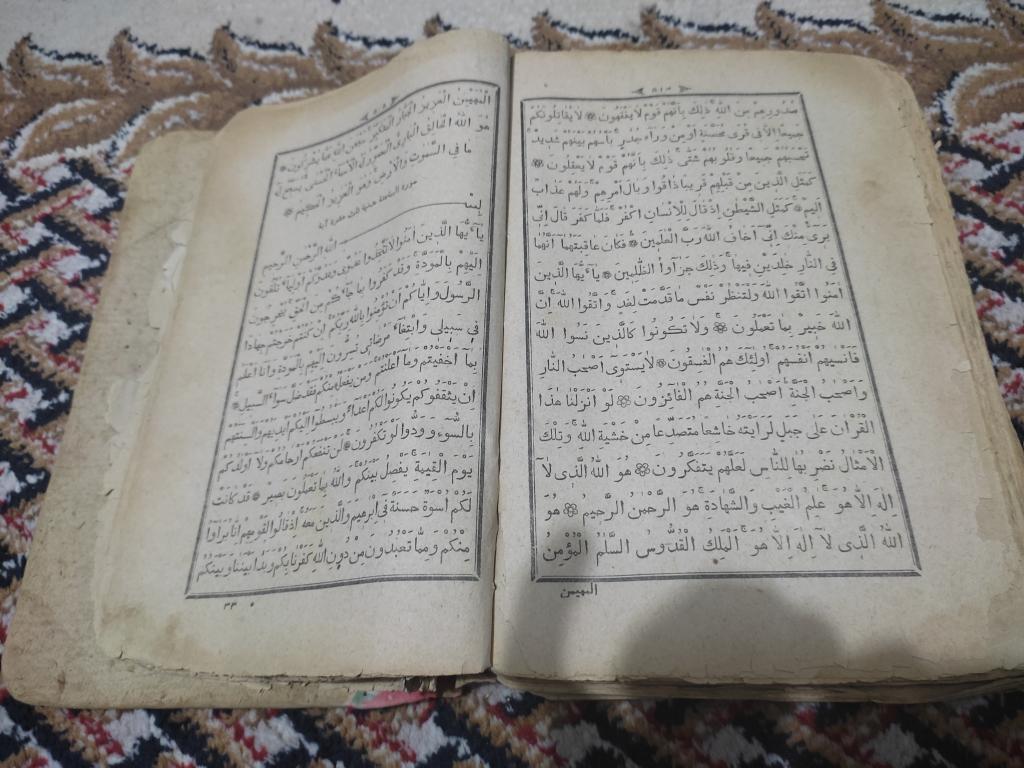 صُدُورِهِمْ مِنَ اللّٰهِ ذٰلِكَ بِاَنَّهُمْ قَوْمٌ لَا يَفْقَهُونَ ۞ لَا يُقَاتِلُونَكُمْ
جَمِيعًا اِلَّا فِى قُرًى مُحَصَّنَةٍ اَوْ مِنْ وَرَآءِ جُدُرٍ بَاْسُهُمْ بَيْنَهُمْ شَدِيدٌ
تَحْسَبُهُمْ جَمِيعًا وَقُلُوبُهُمْ شَتّٰى ذٰلِكَ بِاَنَّهُمْ قَوْمٌ لَا يَعْقِلُونَ ۞
كَمَثَلِ الَّذِينَ مِنْ قَبْلِهِمْ قَرِيبًا ذَاقُوا وَبَالَ اَمْرِهِمْ وَلَهُمْ عَذَابٌ
اَلِيمٌ ۞ كَمَثَلِ الشَّيْطٰنِ اِذْ قَالَ لِلْاِنْسَانِ اكْفُرْ فَلَمَّا كَفَرَ قَالَ اِنِّى
بَرِىءٌ مِنْكَ اِنِّى اَخَافُ اللّٰهَ رَبَّ الْعٰلَمِينَ ۞ فَكَانَ عَاقِبَتَهُمَا اَنَّهُمَا
فِى النَّارِ خٰلِدَيْنِ فِيهَا وَذٰلِكَ جَزٰٓؤُا الظّٰلِمِينَ ۞ يَآ اَيُّهَا الَّذِينَ
اٰمَنُوا اتَّقُوا اللّٰهَ وَلْتَنْظُرْ نَفْسٌ مَا قَدَّمَتْ لِغَدٍ وَاتَّقُوا اللّٰهَ اِنَّ
اللّٰهَ خَبِيرٌ بِمَا تَعْمَلُونَ ۞ وَلَا تَكُونُوا كَالَّذِينَ نَسُوا اللّٰهَ
فَاَنْسٰيهُمْ اَنْفُسَهُمْ اُولٰٓئِكَ هُمُ الْفٰسِقُونَ ۞ لَا يَسْتَوِىٓ اَصْحٰبُ النَّارِ
وَاَصْحٰبُ الْجَنَّةِ اَصْحٰبُ الْجَنَّةِ هُمُ الْفَآئِزُونَ ۞ لَوْ اَنْزَلْنَا هٰذَا
الْقُرْاٰنَ عَلٰى جَبَلٍ لَرَاَيْتَهُ خَاشِعًا مُتَصَدِّعًا مِنْ خَشْيَةِ اللّٰهِ وَتِلْكَ
الْاَمْثَالُ نَضْرِبُهَا لِلنَّاسِ لَعَلَّهُمْ يَتَفَكَّرُونَ ۞ هُوَ اللّٰهُ الَّذِى لَآ
اِلٰهَ اِلَّا هُوَ عٰلِمُ الْغَيْبِ وَالشَّهَادَةِ هُوَ الرَّحْمٰنُ الرَّحِيمُ ۞ هُوَ
اللّٰهُ الَّذِى لَآ اِلٰهَ اِلَّا هُوَ اَلْمَلِكُ الْقُدُّوسُ السَّلٰمُ الْمُؤْمِنُ
المهيمن
الْمُهَيْمِنُ الْعَزِيزُ الْجَبَّارُ الْمُتَكَبِّرُ سُبْحٰنَ اللّٰهِ عَمَّا يُشْرِكُونَ ۞
هُوَ اللّٰهُ الْخَالِقُ الْبَارِئُ الْمُصَوِّرُ لَهُ الْاَسْمَآءُ الْحُسْنٰى يُسَبِّحُ لَهُ
مَا فِى السَّمٰوٰتِ وَالْاَرْضِ وَهُوَ الْعَزِيزُ الْحَكِيمُ ۞
سورة الممتحنة مدنية ثلاث عشرة آية
بِسْمِ اللّٰهِ الرَّحْمٰنِ الرَّحِيمِ
يَآ اَيُّهَا الَّذِينَ اٰمَنُوا لَا تَتَّخِذُوا عَدُوِّى وَعَدُوَّكُمْ اَوْلِيَآءَ تُلْقُونَ
اِلَيْهِمْ بِالْمَوَدَّةِ وَقَدْ كَفَرُوا بِمَا جَآءَكُمْ مِنَ الْحَقِّ يُخْرِجُونَ
الرَّسُولَ وَاِيَّاكُمْ اَنْ تُؤْمِنُوا بِاللّٰهِ رَبِّكُمْ اِنْ كُنْتُمْ خَرَجْتُمْ جِهَادًا
فِى سَبِيلِى وَابْتِغَآءَ مَرْضَاتِى تُسِرُّونَ اِلَيْهِمْ بِالْمَوَدَّةِ وَاَنَا اَعْلَمُ
بِمَآ اَخْفَيْتُمْ وَمَآ اَعْلَنْتُمْ وَمَنْ يَفْعَلْهُ مِنْكُمْ فَقَدْ ضَلَّ سَوَآءَ السَّبِيلِ ۞
اِنْ يَثْقَفُوكُمْ يَكُونُوا لَكُمْ اَعْدَآءً وَيَبْسُطُوٓا اِلَيْكُمْ اَيْدِيَهُمْ وَاَلْسِنَتَهُمْ
بِالسُّوٓءِ وَوَدُّوا لَوْ تَكْفُرُونَ ۞ لَنْ تَنْفَعَكُمْ اَرْحَامُكُمْ وَلَآ اَوْلَادُكُمْ
يَوْمَ الْقِيٰمَةِ يَفْصِلُ بَيْنَكُمْ وَاللّٰهُ بِمَا تَعْمَلُونَ بَصِيرٌ ۞ قَدْ كَانَتْ
لَكُمْ اُسْوَةٌ حَسَنَةٌ فِىٓ اِبْرٰهِيمَ وَالَّذِينَ مَعَهُ اِذْ قَالُوا لِقَوْمِهِمْ اِنَّا بُرَءٰٓؤُا
مِنْكُمْ وَمِمَّا تَعْبُدُونَ مِنْ دُونِ اللّٰهِ كَفَرْنَا بِكُمْ وَبَدَا بَيْنَنَا وَبَيْنَكُمُ
٣٣